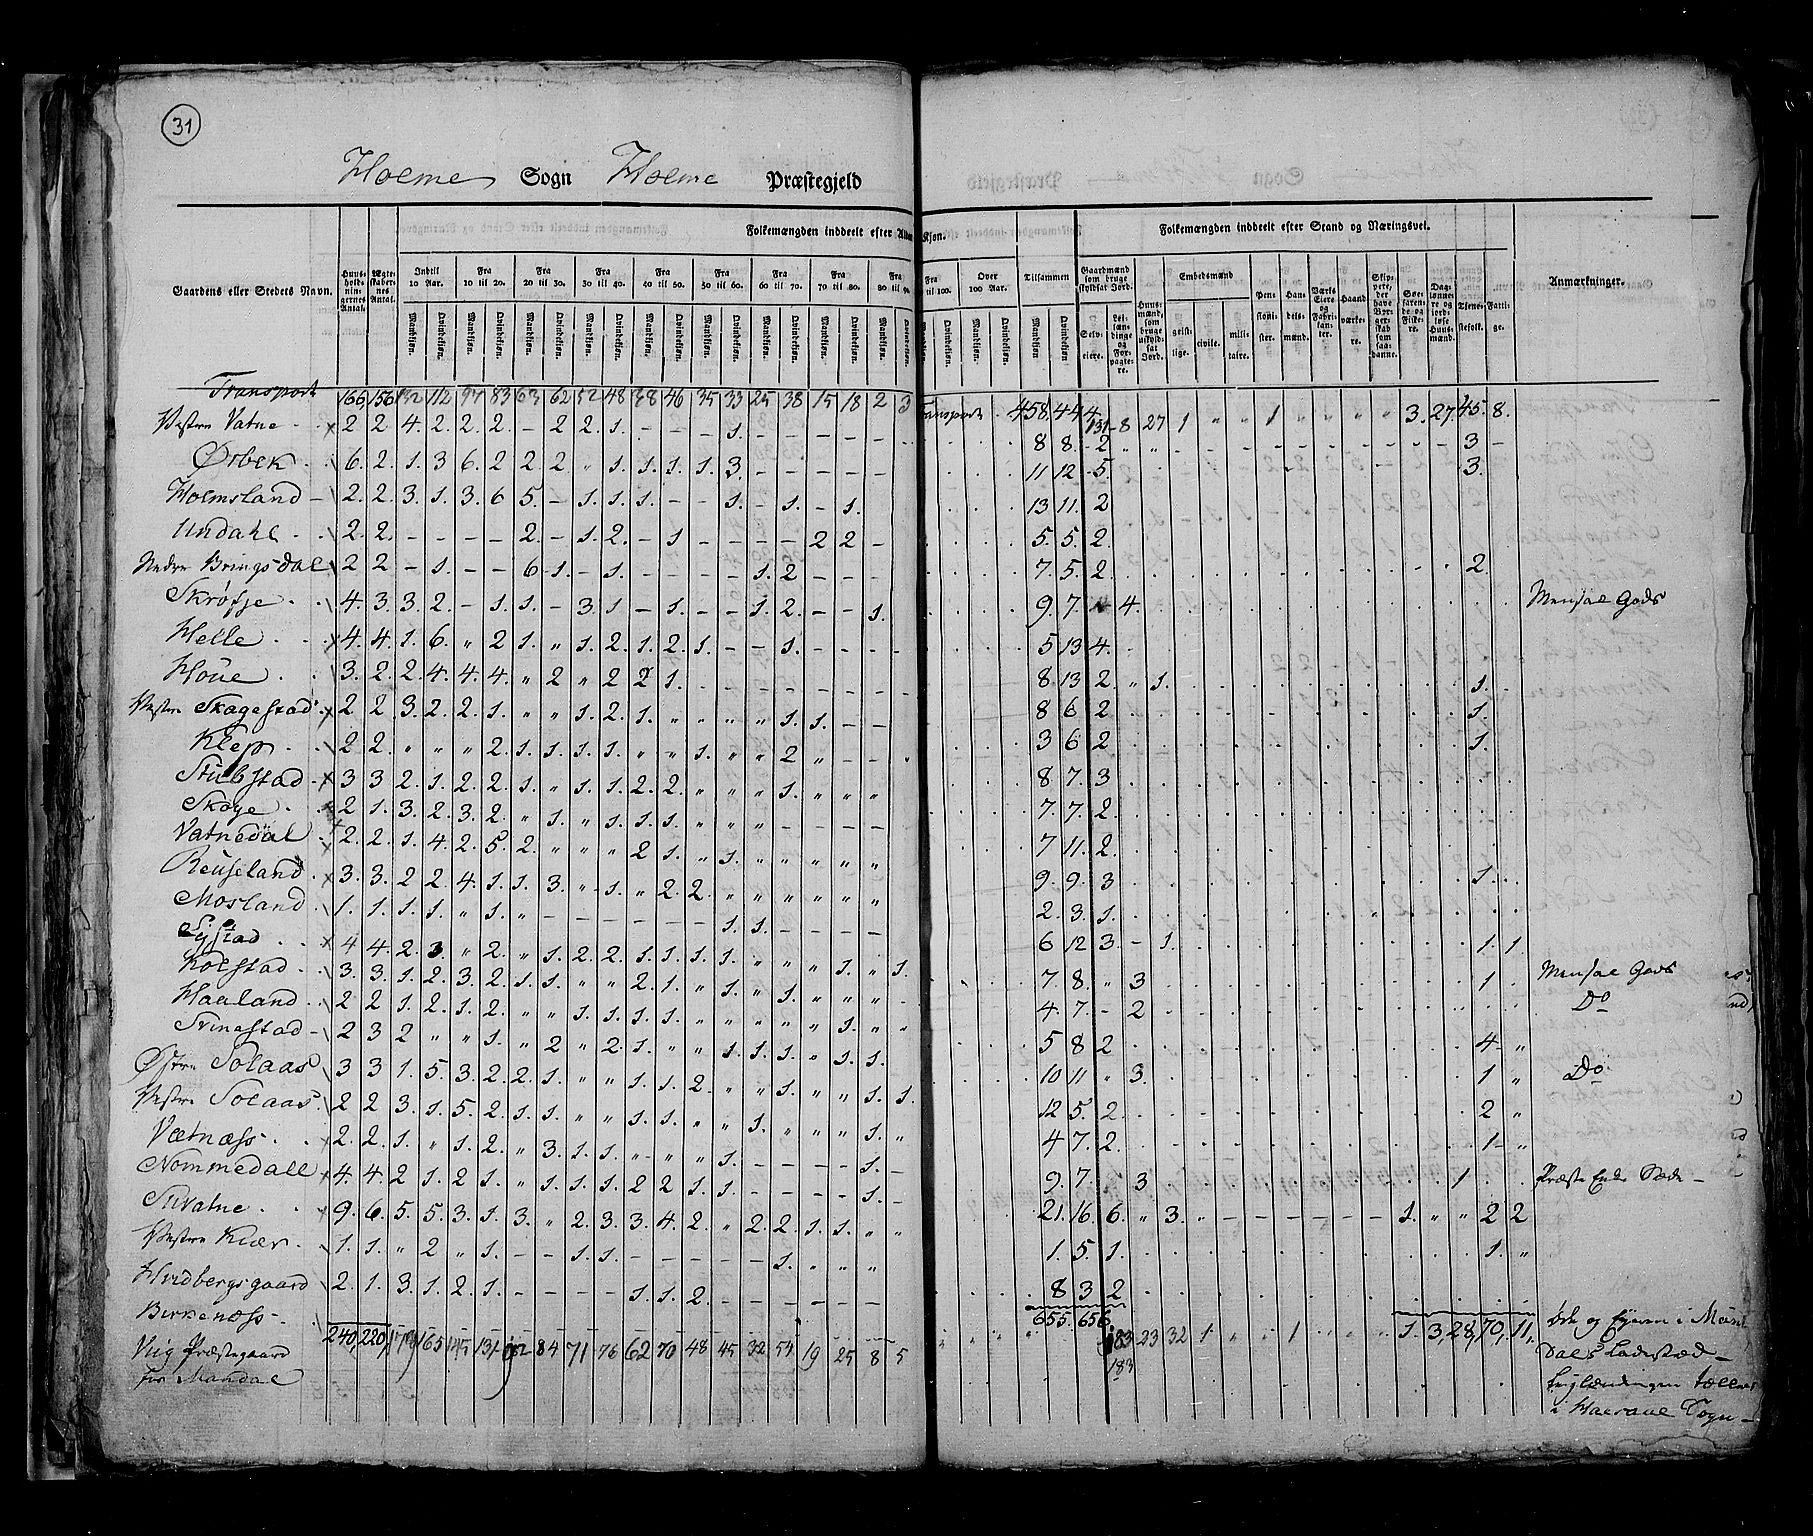 31
Holme Sogn Holme Præstegjeld
Folkemængden inddeelt efter Alder
Kjøn.
Folkemængden inddeelt efter Stand og Næringsvei.
Gaardens eller Stedets Navn.
Huus-holdnin-gernes Antal.
Ægte-skaber-nes Antal.
Indtil 10 Aar.
Fra 10 til 20.
Fra 20 til 30.
Fra 30 til 40.
Fra 40 til 50.
Fra 50 til 60.
Fra 60 til 70.
Fra 70 til 80.
Fra 80 til 90.
Fra til 100.
Over 100 Aar.
Tilsammen
Mandkjøn. Qvindekjøn.
Gaardmænd som bruge skyldsat Jord.
Selv-eiere.
Lei-lændinge og For-pagte-re.
Huus-mænd, som bruge uskyld-sat Jord.
Embedsmænd
geist-lige.
civile.
mili-taire.
Pensioni-ster.
Han-dels-mænd.
Værks Eiere og Fabri-kan-ter.
Haand-værke-re.
Skip-pere, der have Bor-ger-skab som saa-danne.
Søe-farende og Fiskere.
Dag-lønne-re og jordløse Huus-mænd.
Tjene-stefolk.
Fatti-ge.
Anmærkninger.
Transport 166 156 132 112 97 83 63 62 52 48 38 46 35 33 25 38 15 18 2 3 Transport 458 444 131 8 27 1 " " 1 " " " " 3. 27. 45. 8.
Vestre Vatne 2 2 4. 2. 2. 2. – 2 2. 1. – – – 1. 8 8. 2 3
Ørbek 6. 2. 1. 3 6. 2 2. 2 " 1. 1. 1. 1. 3. 11 12. 5. 3.
Holmsland 2. 2 3. 1. 3. 6 5. – 1. 1. 1. – – 1. – 1. – 1. 13 11. 2
Undahl 2. 2. – – – – 2. – 1. 2. – 1 – – – – 2 2 – 5. 5. 2.
Nedre Bringsdal 2 2 – 1. – – 6 1. – 1. – – – – 1. 2 – – – 7. 5. 2. 2.
Skrøfje 4. 3. 3. 2. – 1. 1. – 3 1. – 1. – – 1. 2. – – 1. 9. 7. 4. Mensal Gods
Helle 4. 4. 1. 6. " 2 1. " 1. 2. 1. 2. 1. – – 1. – – – 5 13 4.
Höüe 3. 2. 2. 4. 4. 4. " 2 " 2 2 1. 8 13 2. " 1. 1.
Vestre Skagestad 2 2. 3. 2. 2. 1. " " 1. 2. 1. " " " " 1. 1. – – 8 6 2 1.
Klep 2 2. " " " 2. 1. 1. 1. 1. " " 1. " " 2 " – – 3 6 2 1.
Stübstad 3 3 2. 1. 2. 2. 1. " 1. 1. 2. 2. " " " 1. " " " 8 7. 3
Skøye 2 1. 3. 2. 3. 2. " 1. " 1. 1. 1. " " " – – – – 7. 7. 2.
Vatnedal 2. 2. 1. 4. 2. 5. 2. " " " 2 1. " 1. " " " " " 7 11. 2.
Reuseland 3. 3. 2 2. 4. 1. 1. 3. " 1. " 2. 2. " " " " " " 9. 9. 3 1.
Mosland 1. 1. 1. 1. " 1. " – – – – – – 1. 1. – – – – 2. 3. 1.
Systad 4 4. 2. 3. " 2. " 1. 2 2. 1. 1. 1. 1. " " 1. " 1. 6 12 3. – 1. 1. 1
Kolstad 3. 3. 1. 2. 3. 2. 1. 1. " " 2. 1. " 1. " 1. " " " 7. 8. " 3 1 Mensal Gods
Haaland 2 2 1. 2. 1. 2. " " 1. 1. 1. 1. " " " " 1. " " 4. 7. – 2 Do
Trinestad 2 3 2 " " 1. " 2 – 2. 1. " " 1. 1. 1. " 1. 1. 5 8 2 4 "
Østre Solaas 3 3 1. 5. 3. 2. 2. 1. " " 1. 1. 2. " " 1. " " 1. 1. 10 11 " 3. 1 " Do
Vestre Solaas 2 2 3. 1. 5. 2. 1. 1. " " 1. 1. " " 1. " " " 1. " 12 5. 2. 2 "
Vætnæss 2. 2. 1. " 1. 2. " 3. 1. 1. " " " 1. – – – – 1. – 4 7. 2. 1 "
Nommedall 4. 4. 2 1. 2 1. " 1. 1. 1. 2 2 1. 1. – – – – 1. – 9. 7. 3 1 Præste Enke Sæde –
Suvatne 9. 6. 5. 5. 3. 1. 3. " 2. 3. 3. 4. 2. " 2. 2. 1. 1. " " 21. 16. 6. " 3. 1. " " 2 2
Vestre Kiær 1. 1. " 2 " 1. – – 1. 1. – – – – – 1. " " " 1. 5. 1. 1. "
Hvidbergsgaard 2. 1. 3. 1. 2. 1. – – – – 1. 1. 2. – – – – – – 8 3 2
Birkenæss
655. 656.
240, 220, 173 165 145 131 92 84 71 76 62 70 48 45 32 54 19 25 8 5 183 23 32 1 " " 1 " " " 1. 3, 28, 70, 11,
183
Vüg Præstegaard
for Mandal
Øde og Ejeren i Man-
Dals Ladested –
i Halsaae Sogn –